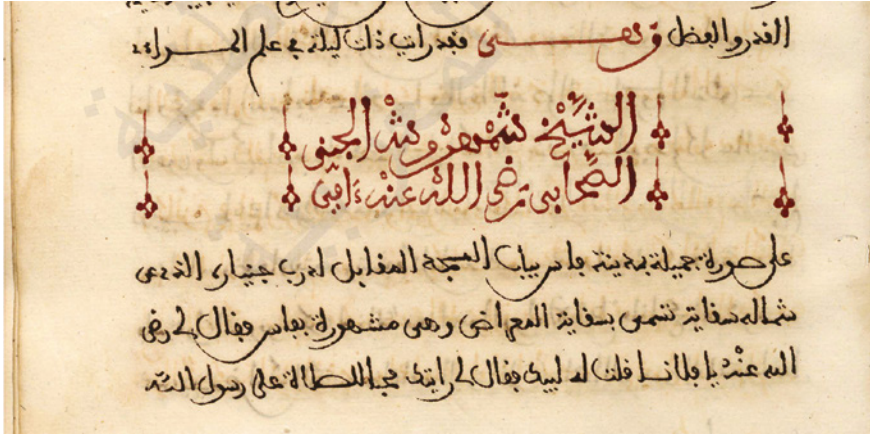 القدر والفضل وهى فقد رايت ذات ليلة في علم المراءى
الشيخ شمهروش الجني
الصحابي رضي الله عنه ءامين
على صورة جميلة بمدينة فاس بباب المسجد المقابل لدرب جنيارة الذى عن
شماله سقاية تسمى بسقاية الدمراضى وهى مشهورة بفاس فقال لى رضى
الله عنه يا فلان فقلت له لبيك فقال لى رايتك محبا للصلاة على رسول الله